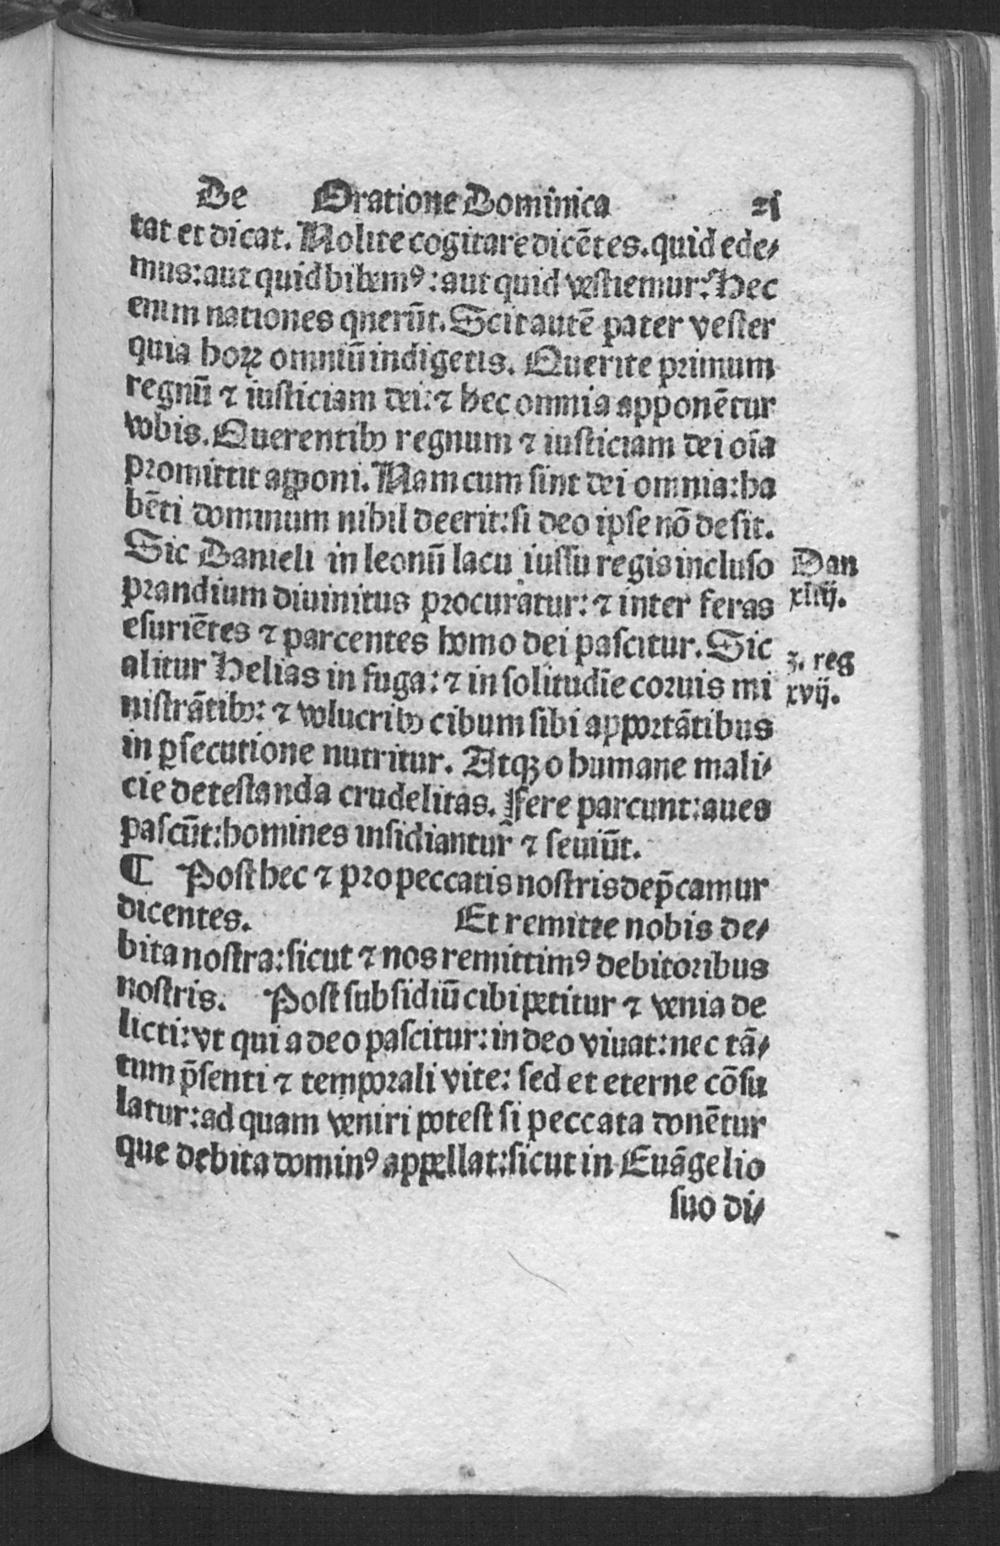 De Oratione Dominica xi
tat et dicat. Nolite cogitare dicẽtes. quid ede⸗
mus: aut quid bibemꝰ: aut quid vestiemur? Hec
enim nationes querũt. Scit autẽ pater vester
quia hoꝝ omniũ indigetis. Querite primum
regnũ ⁊ iusticiam dei: ⁊ hec omnia apponẽtur
vobis. Querentibꝰ regnum ⁊ iusticiam dei oĩa
promittit apponi. Nam cum sint dei omnia: ha
bẽti dominum nihil deerit: si deo ipse nõ desit.
Sic Danieli in leonũ lacu iussu regis incluso Dan
prandium diuinitus procuratur: ⁊ inter feras xiiij.
esuriẽtes ⁊ parcentes homo dei pascitur. Sic
alitur Helias in fuga: ⁊ in solitudĩe coruis mi 3. reg
nistrãtibꝰ: ⁊ volucribꝰ cibum sibi apportãtibus xvij.
in ꝑsecutione nutritur. Atqꝫ o humane mali⸗
cie detestanda crudelitas. Fere parcunt: aues
pascũt: homines insidiantur ⁊ seuiũt.
¶ Post hec ⁊ pro peccatis nostris dep̃camur
dicentes. Et remitte nobis de⸗
bita nostra: sicut ⁊ nos remittimꝰ debitoribus
nostris. Post subsidiũ cibi petitur ⁊ venia de
licti: vt qui a deo pascitur: in deo viuat: nec tã⸗
tum p̃senti ⁊ temporali vite: sed et eterne cõsu
latur: ad quam veniri potest si peccata donẽtur
que debita dominꝰ appellat: sicut in Euãgelio
suo di⸗